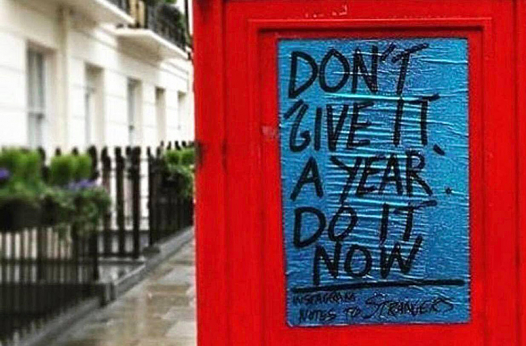 DON'T
GIVE IT.
A YEAR.
DO IT
NOW
INSTAGRAM
NOTES TO STRANGERS